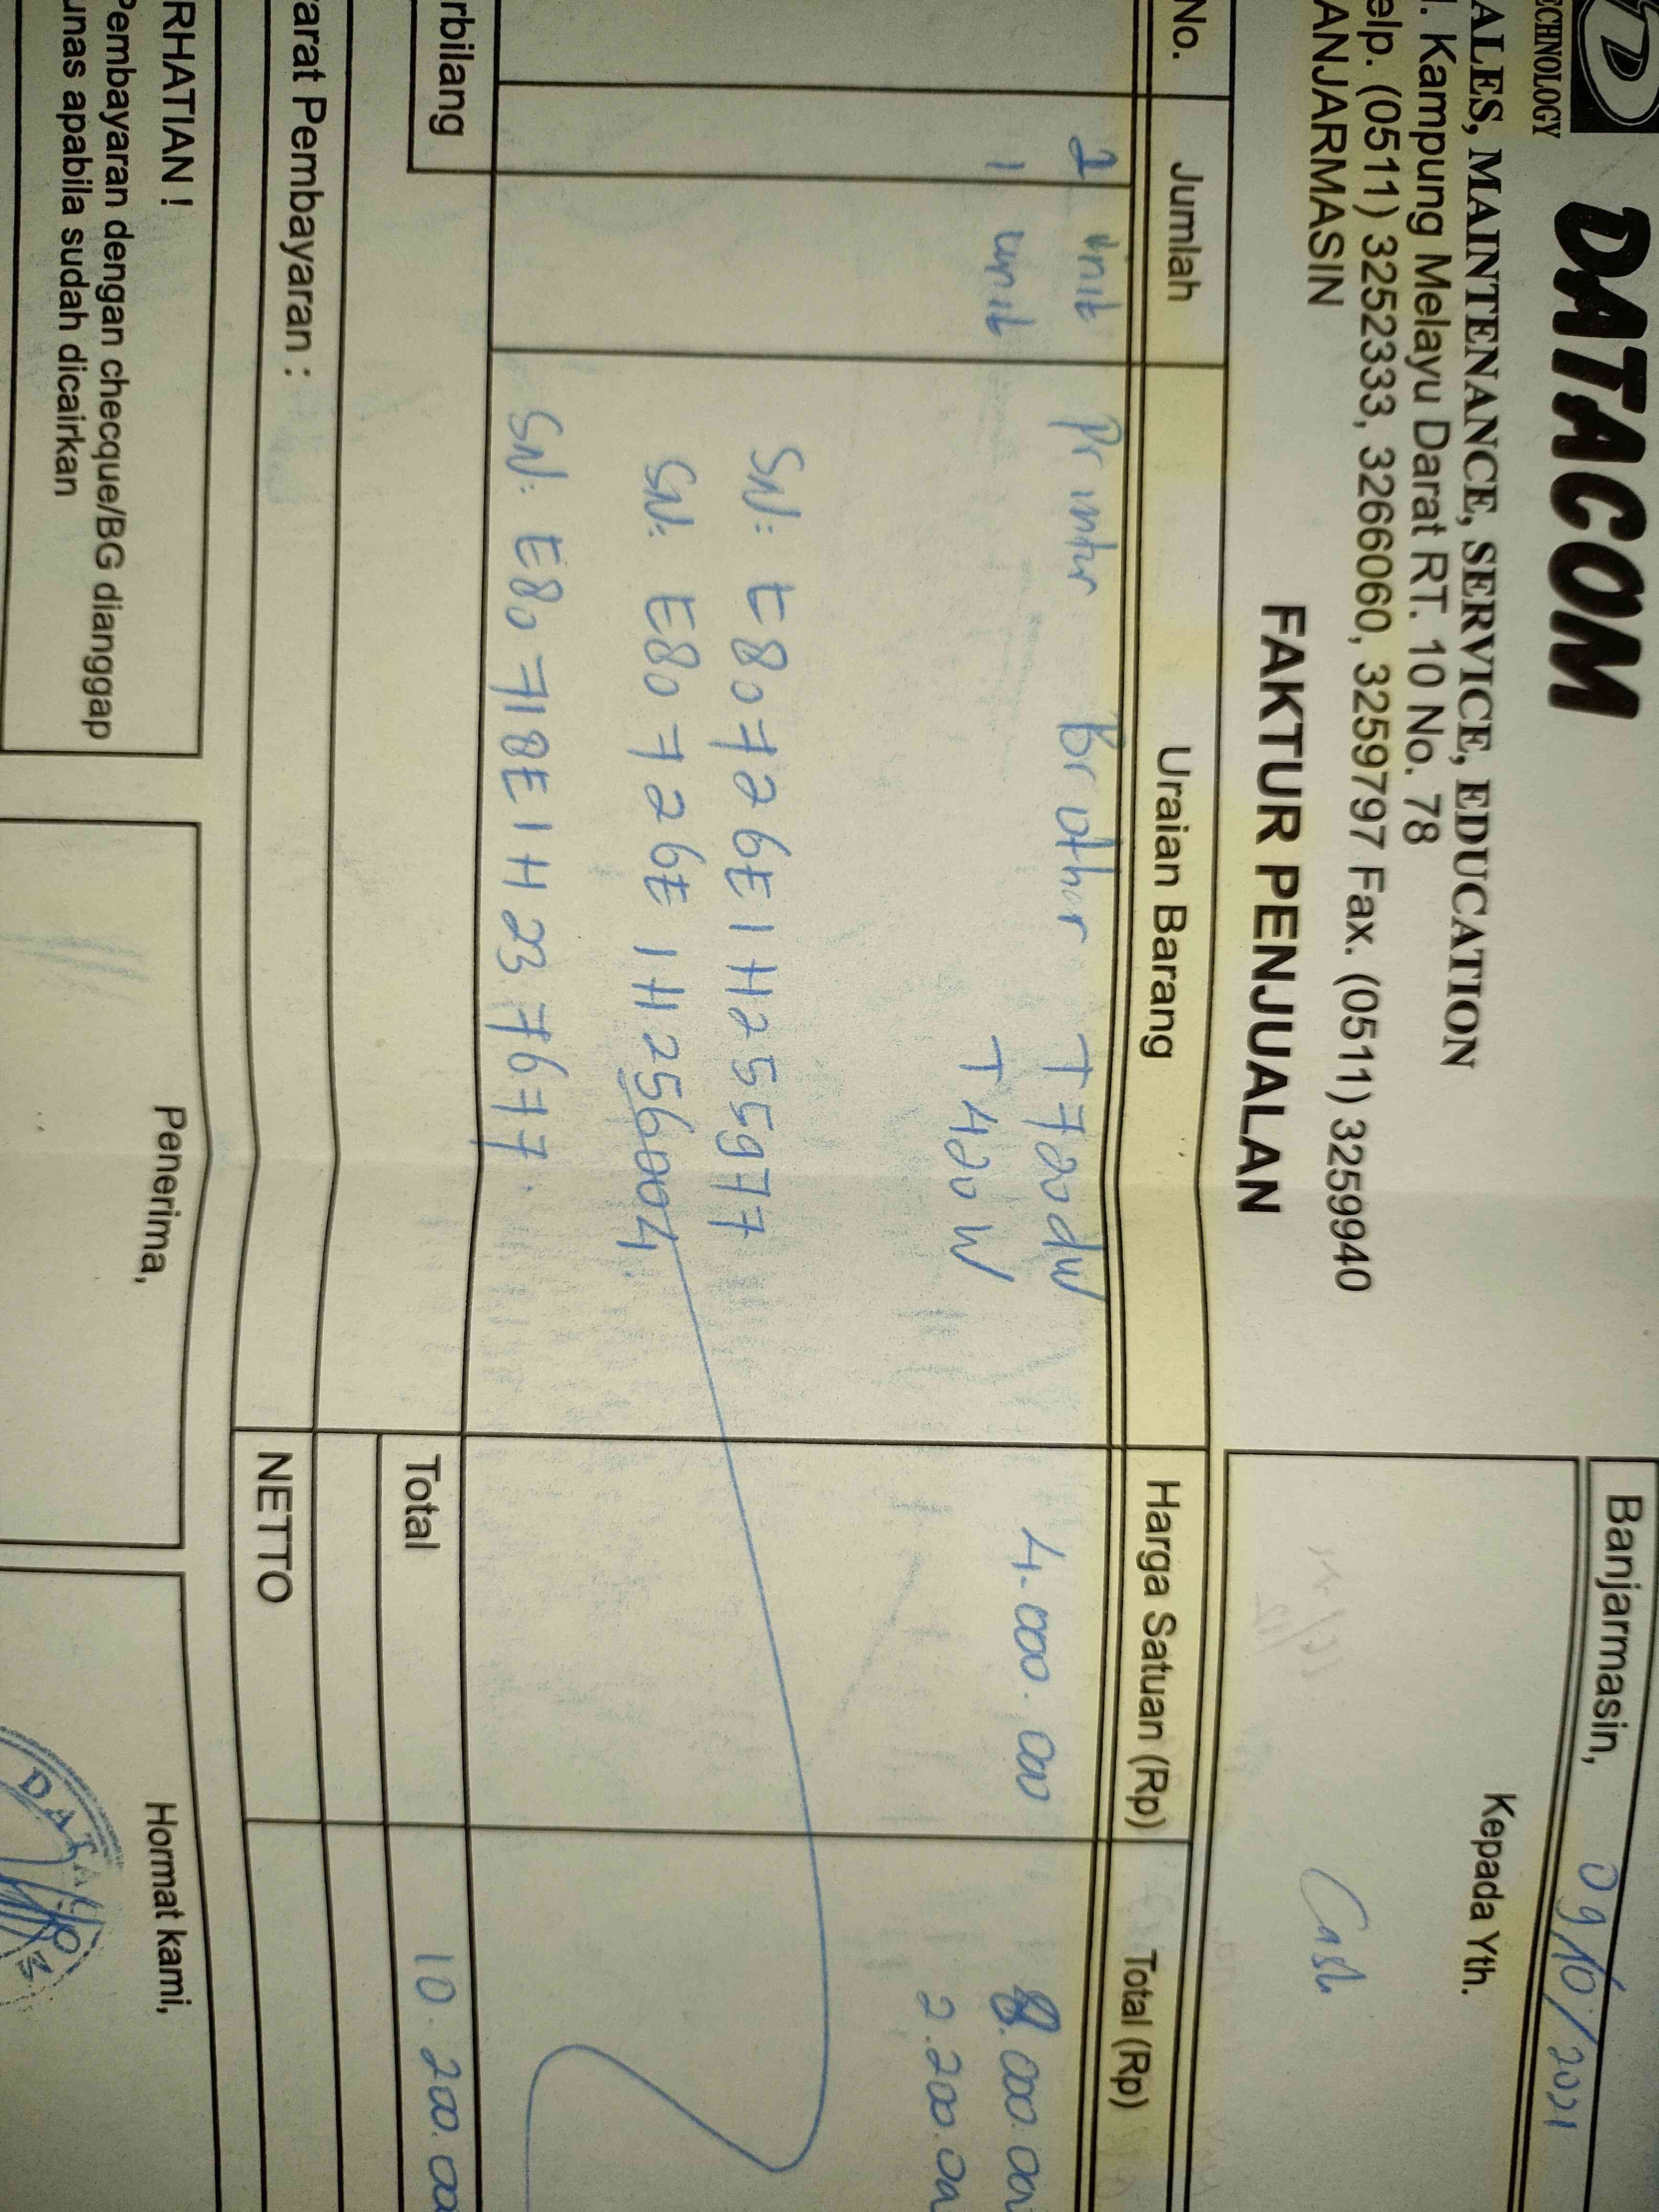 D
ECHNOLOGY
DATACOM
ALES, MAINTENANCE, SERVICE, EDUCATION
l. Kampung Melayu Darat RT. 10 No. 78
elp. (0511) 3252333, 3266060, 3259797 Fax. (0511) 3259940
ANJARMASIN
Banjarmasin, 09/10/2021
Kepada Yth.
Cash
FAKTUR PENJUALAN
No. Jumlah Uraian Barang Harga Satuan (Rp) Total (Rp)
2 unit Printer Brother T720dw 4.000.000 8.000.000
1 unit T420W 2.200.000
SN: E80726E1H255977
SN: E80726E1H256004
SN: E80718E1H237677
rbilang Total 10.200.00
arat Pembayaran :
NETTO
RHATIAN !
Pembayaran dengan checque/BG dianggap
unas apabila sudah dicairkan
Penerima,
Hormat kami,
DATACOM